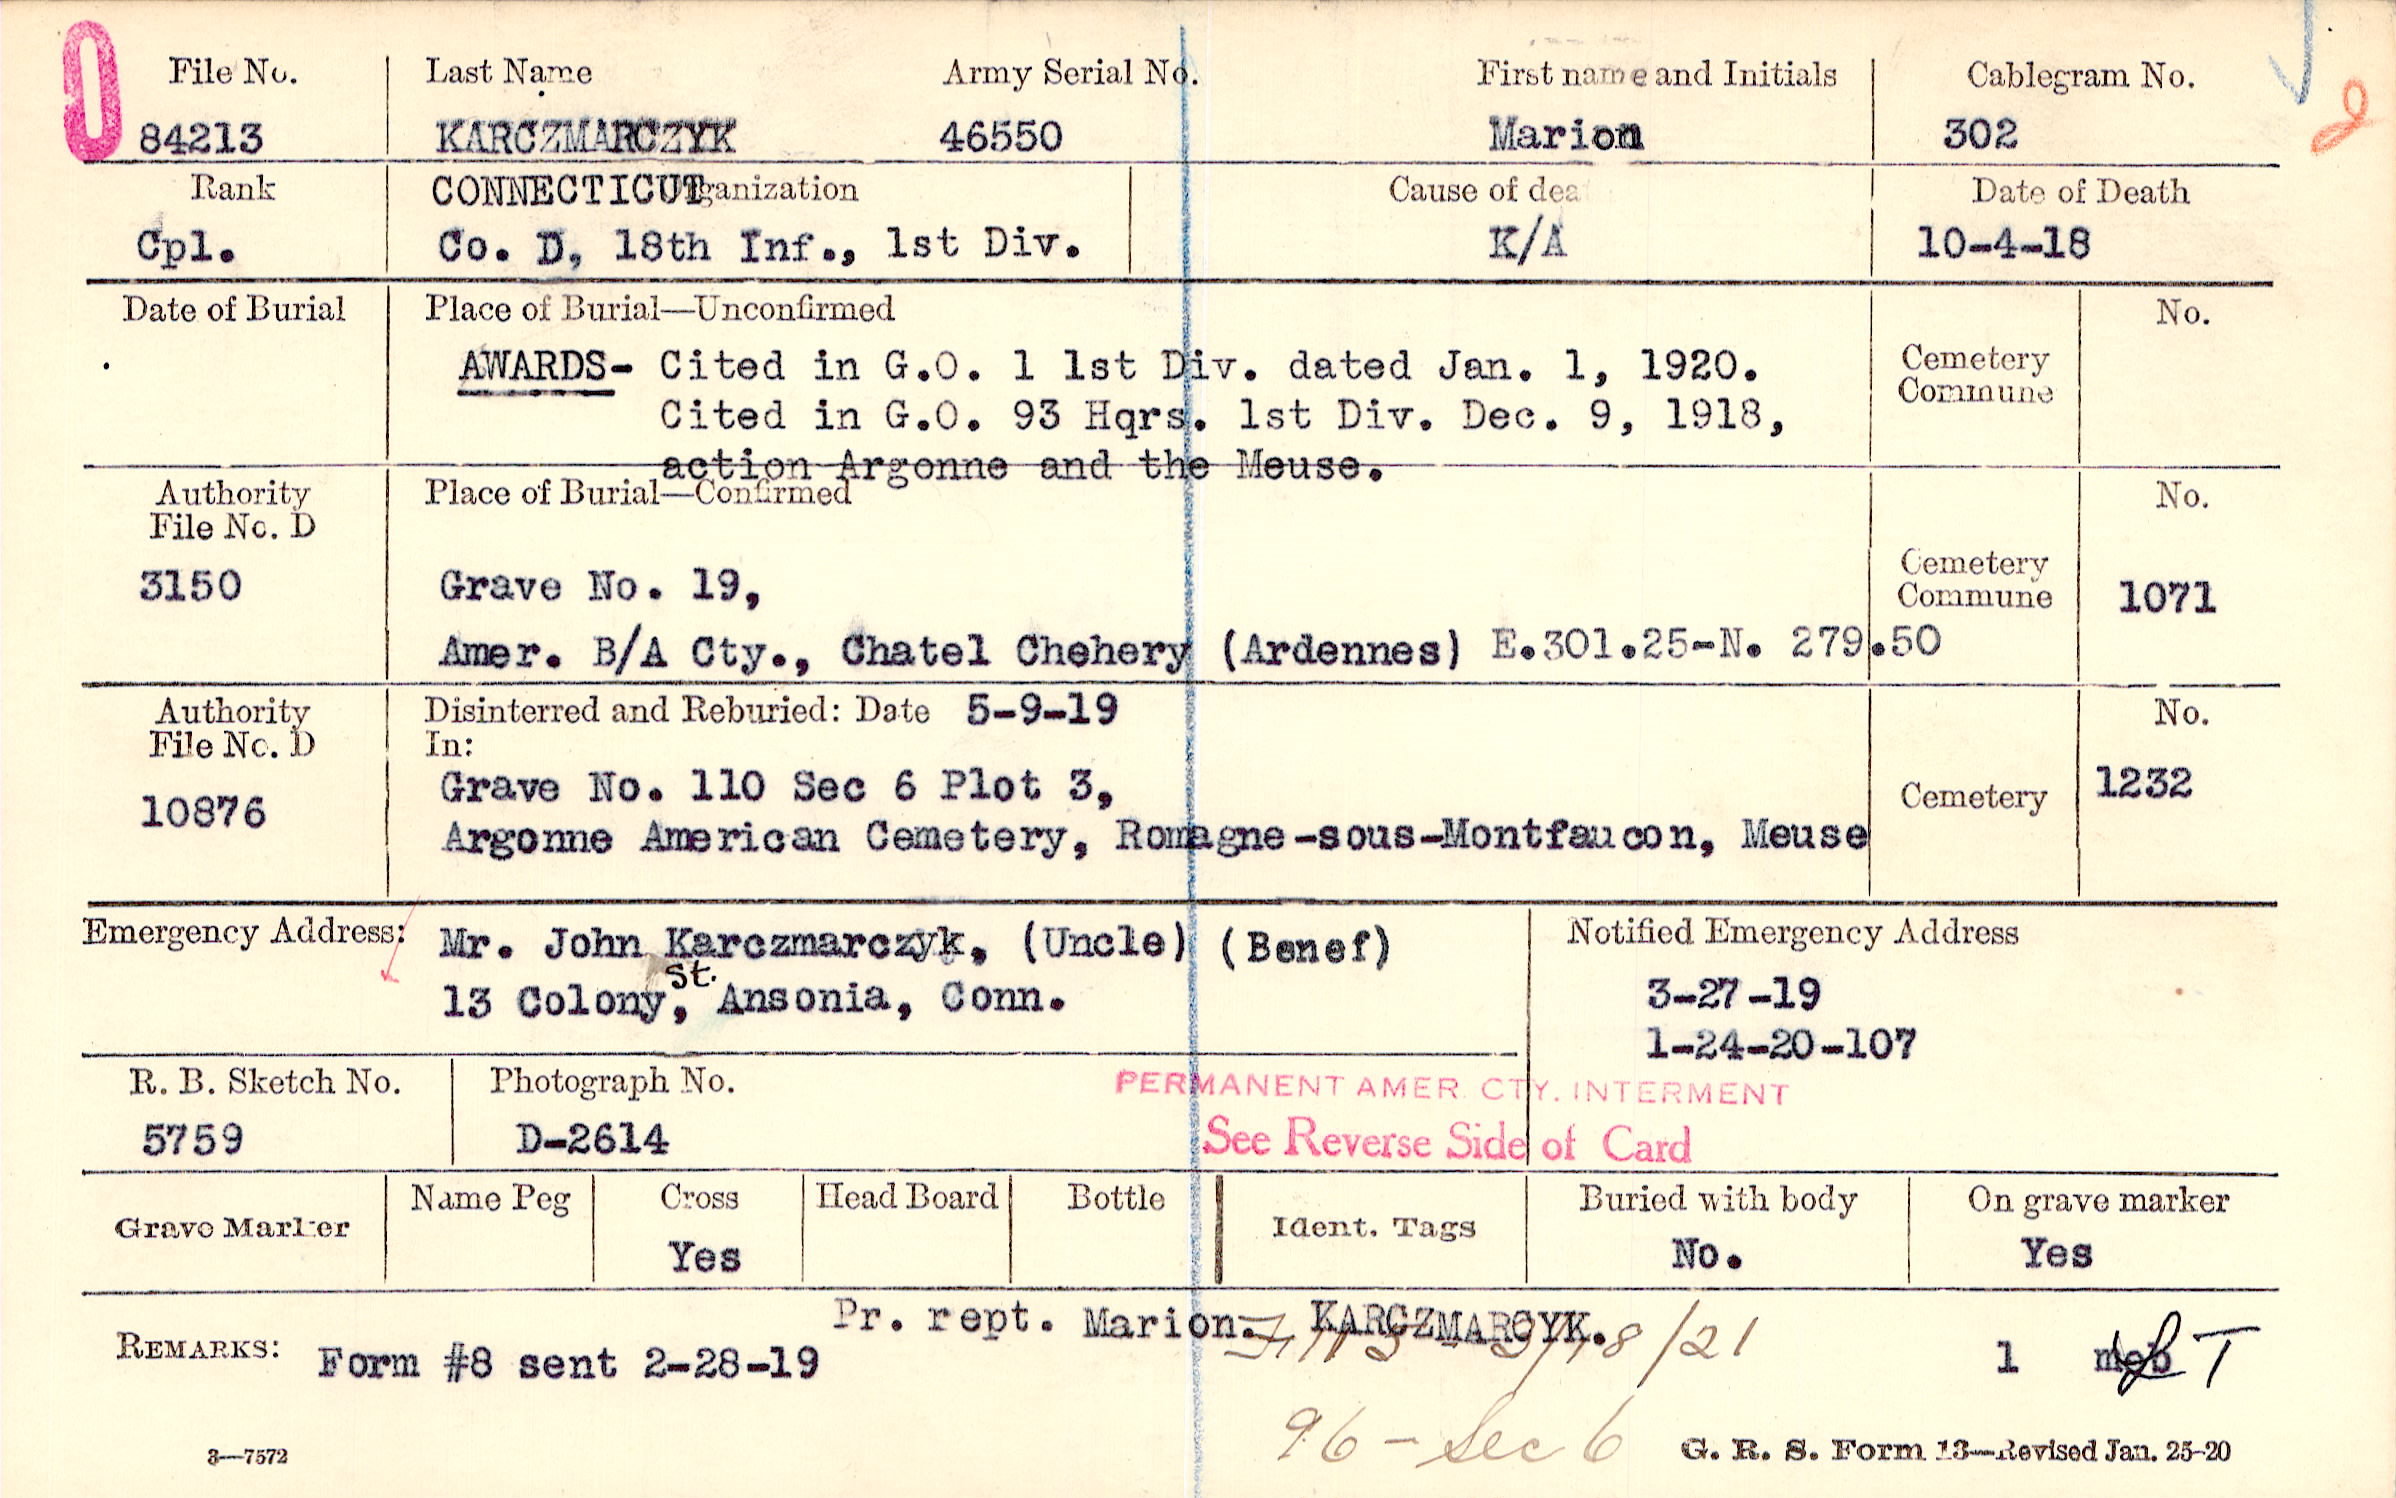 File No. Last Name Army Serial No. First name and Initials Cablegram No.
84213 KARCZMARCZYK 46550 Marion 302
Rank CONNECTICUT Organization Cause of death Date of Death
Cpl. Co. D, 18th Inf., 1st Div. K/A 10-4-18
Date of Burial Place of Burial—Unconfirmed No.
AWARDS- Cited in G.O. 1 1st Div. dated Jan. 1, 1920. Cemetery
Cited in G.O. 93 Hqrs. 1st Div. Dec. 9, 1918, Commune
action Argonne and the Meuse.
Authority Place of Burial—Confirmed No.
File No. D
3150 Grave No. 19, Cemetery
Commune 1071
Amer. B/A Cty., Chatel Chehery (Ardennes) E.301.25-N. 279.50
Authority Disinterred and Reburied: Date 5-9-19 No.
File No. D In:
10876 Grave No. 110 Sec 6 Plot 3, Cemetery 1232
Argonne American Cemetery, Romagne-sous-Montfaucon, Meuse
Emergency Address: Mr. John Karczmarczyk, (Uncle) (Benef) Notified Emergency Address
13 Colony, St. Ansonia, Conn. 3-27-19
1-24-20-107
R. B. Sketch No. Photograph No. PERMANENT AMER. CTY. INTERMENT
5759 D-2614 See Reverse Side of Card
Grave Marker Name Peg Cross Head Board Bottle Ident. Tags Buried with body On grave marker
Yes No. Yes
Pr. rept. Marion. KARCZMARCYK.
REMARKS: Form #8 sent 2-28-19 /21 1 meb T
96 - Sec 6
3—7572 G. R. S. Form 13—Revised Jan. 25-20